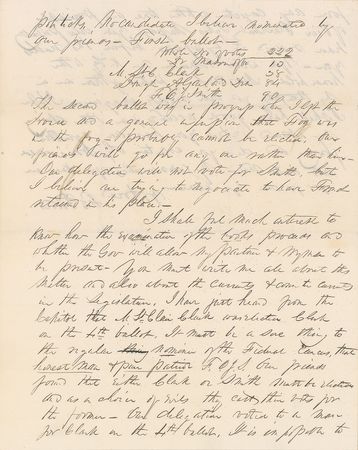 politicks, No candidate I believe nominated by
our friends — First ballot —
Whole No votes 222
for 10
M. St C. Clark 58
84
F.O.J. Smith 90
The second ballot was in progress when I left the
house and a general impression that Fog was
in the fog — probably cannot be elected. Our
friends will go for any one rather than him —
Our delegation will not vote for Smith, but
I believe are trying to negociate to have
retained in his place. —
I shall feel much interest to
know how the examination of the books proceeds and
whether the Gov will allow my & Wyman to
be present — You must write me all about this
matter and also about the currents & counter currents
in the Legislature. I have just heard from the
Capitol that M St Clair Clark was elected Clerk
on the 4th ballot. It must be a sore thing to
the regular nominee of the Federal Caucus, that
honest man & pure patriot F.O.J.S. Our friends
found that either Clark or Smith must be elected
and as a choice of evils they cast their votes for
the former — Our delegation voted to a man
for Clark on the 4th ballot. It is in to